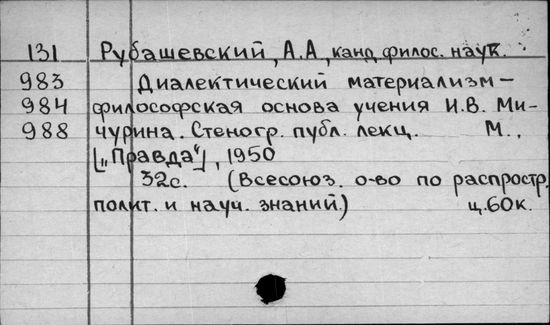 131 Рубашевский, А.А, канд. филос. наук.
983 Диалектический материализм –
984 философская основа учения И.В. Ми-
988 чурина. Стеногр. публ. лекц. М.,
[„Правда“], 1950
32с. (Всесоюз. о-во по распростр.
полит. и науч. знаний.) ц.60к.